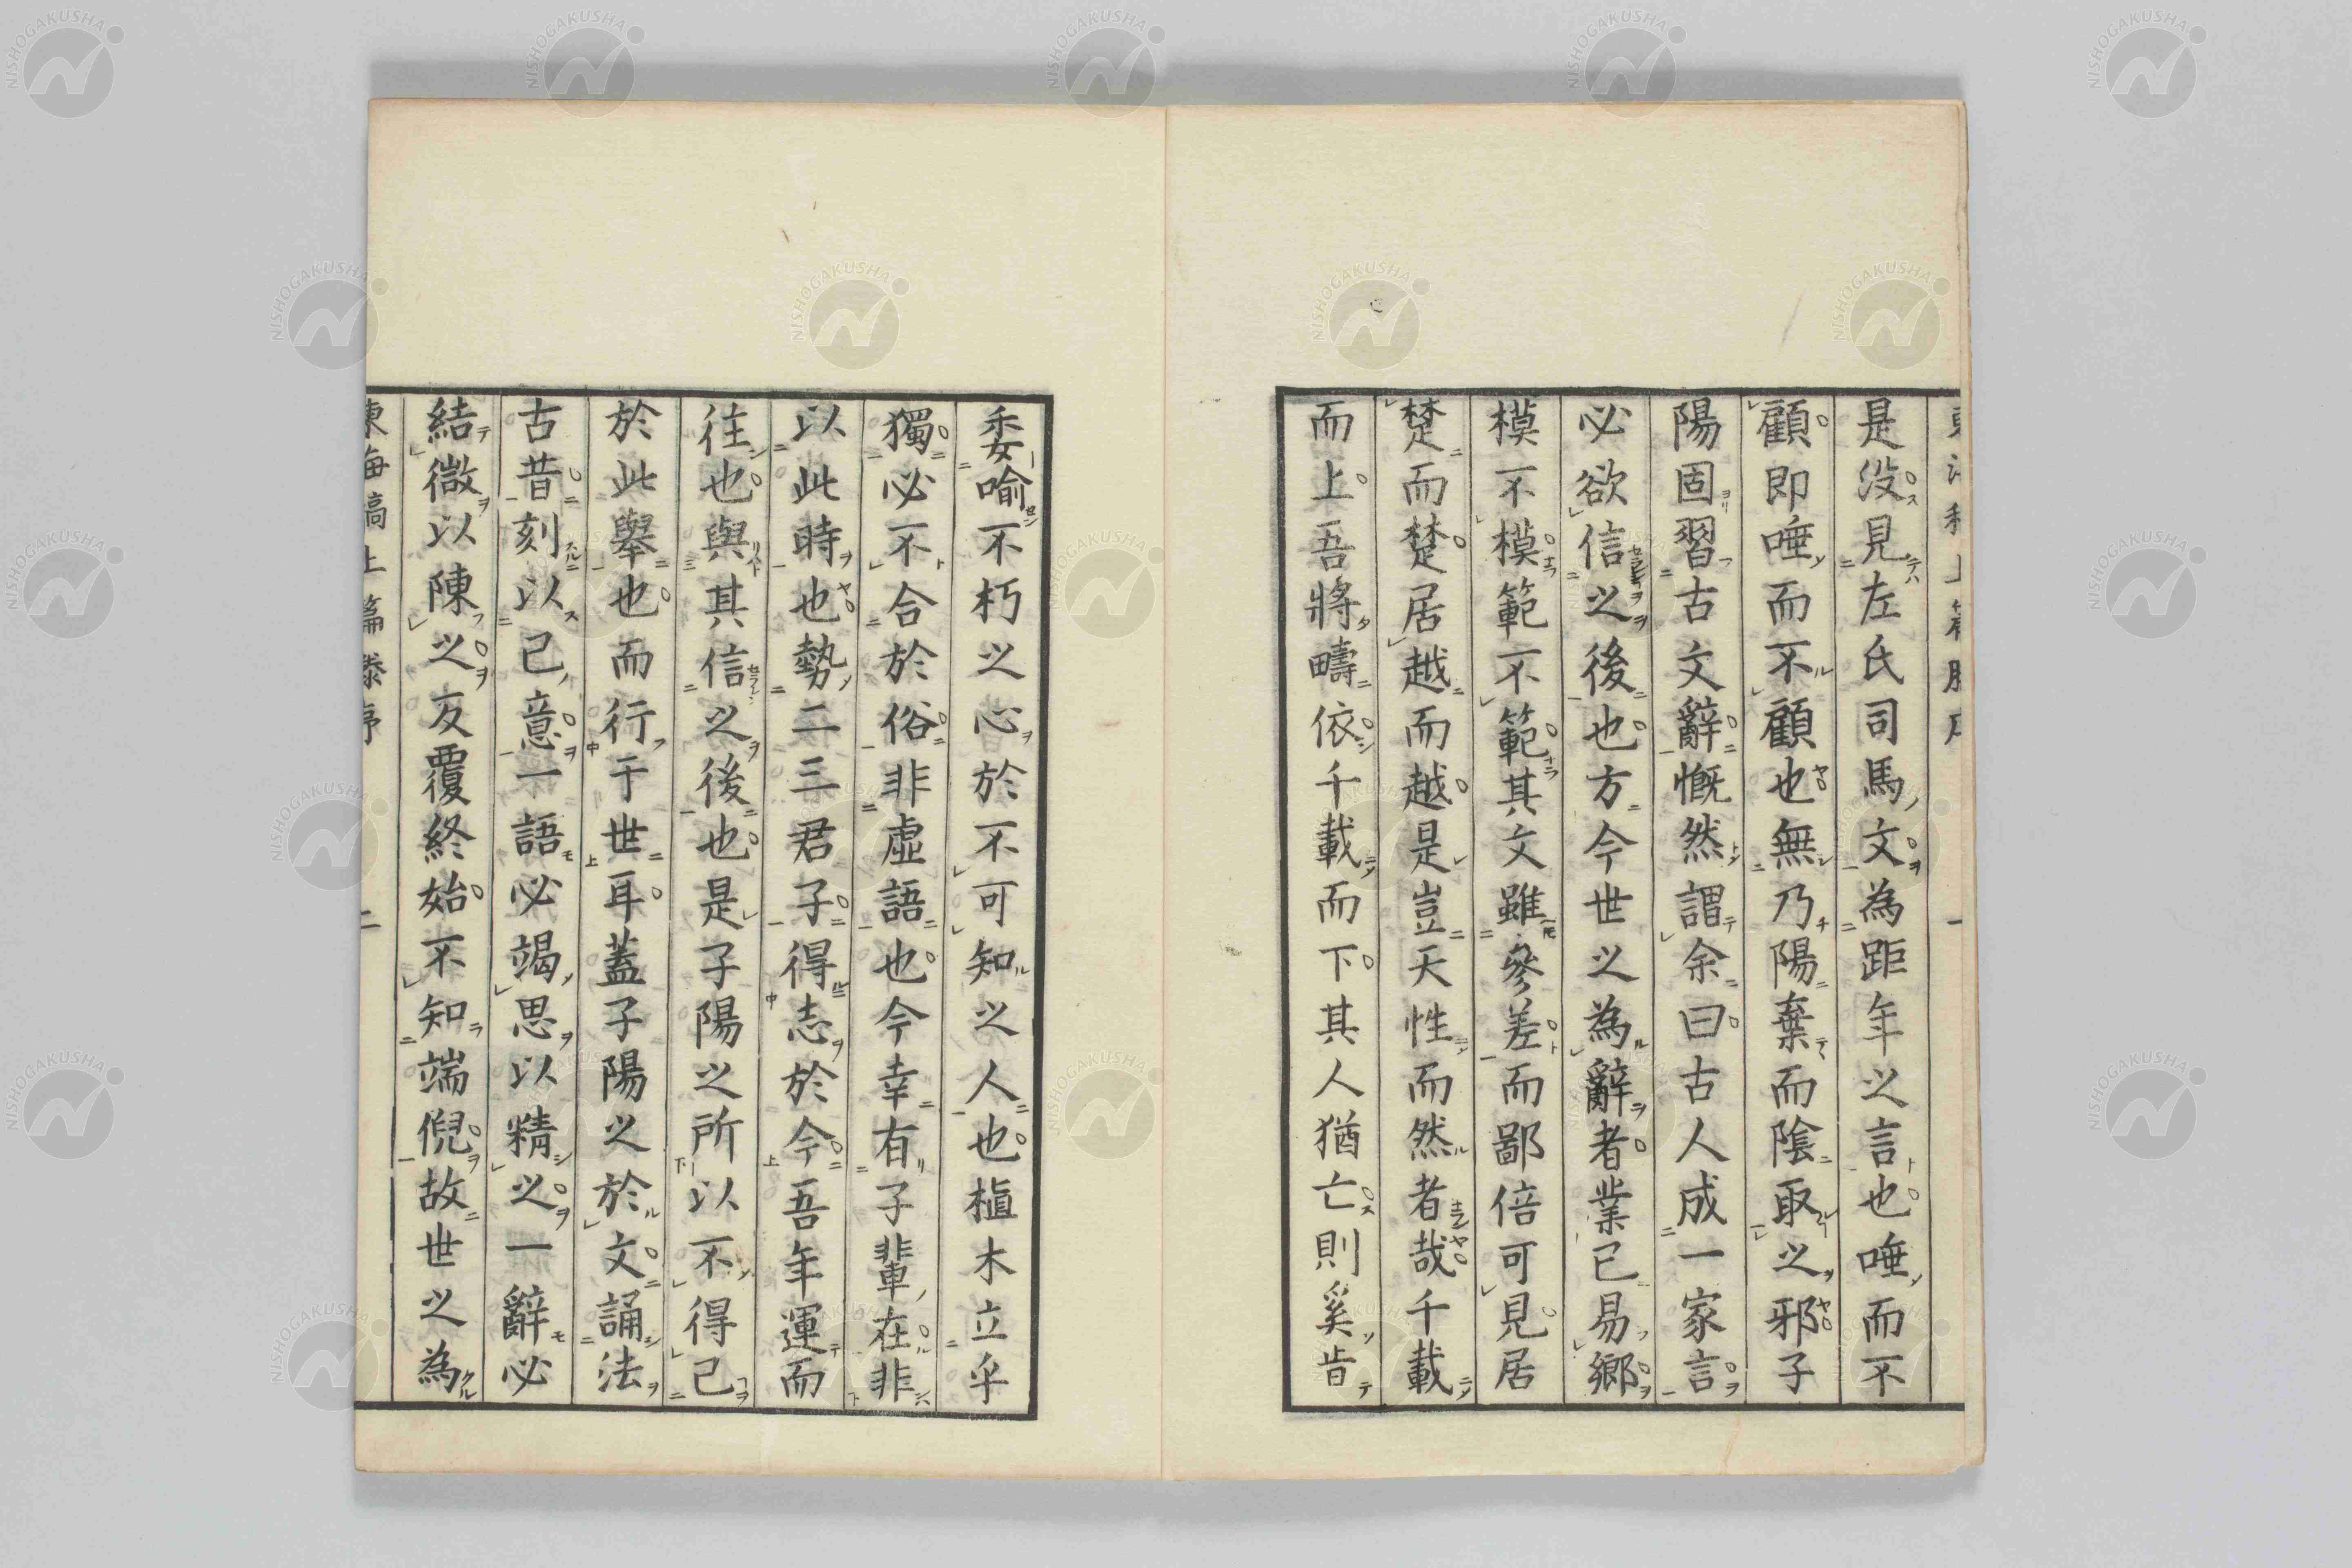 是没見左氏司馬文為距年之言也唾而不
顧即唾而不顧也無乃陽棄而陰取之邪子
陽固習古文辭慨然謂余曰古人成一家言
必欲信之後也方今世之為辭者業已易鄉
模不模範不範其文雖參差而鄙倍可見居
楚而楚居越而越是豈天性而然者哉千載
而上吾將疇依千載而下其人猶亡則奚
委喻不朽之心於不可知之人也植木立乎
獨必不合於俗非虛語也今幸有子輩在非
以此時也勢二三君子得志於今吾年運而
往也與其信之後也是子陽之所以不得已
於此舉也而行于世耳蓋子陽之於文誦法
古昔刻以己意一語必竭思以精之一辭必
結微以陳之反覆終始不知端倪故世之為
東海稿上篇滕序 二
NISHOGAKUSHA